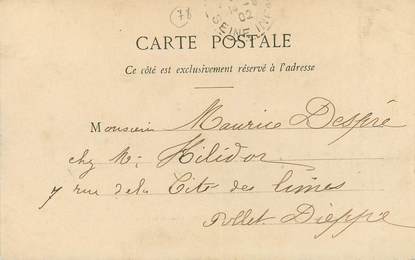 78
02
SEINE INF
CARTE POSTALE
Ce côté est exclusivement réservé à l'adresse
Monsieur Maurice Despré
chez Mr Hilidor
7 rue de la Cité des limes
Pollet Dieppe